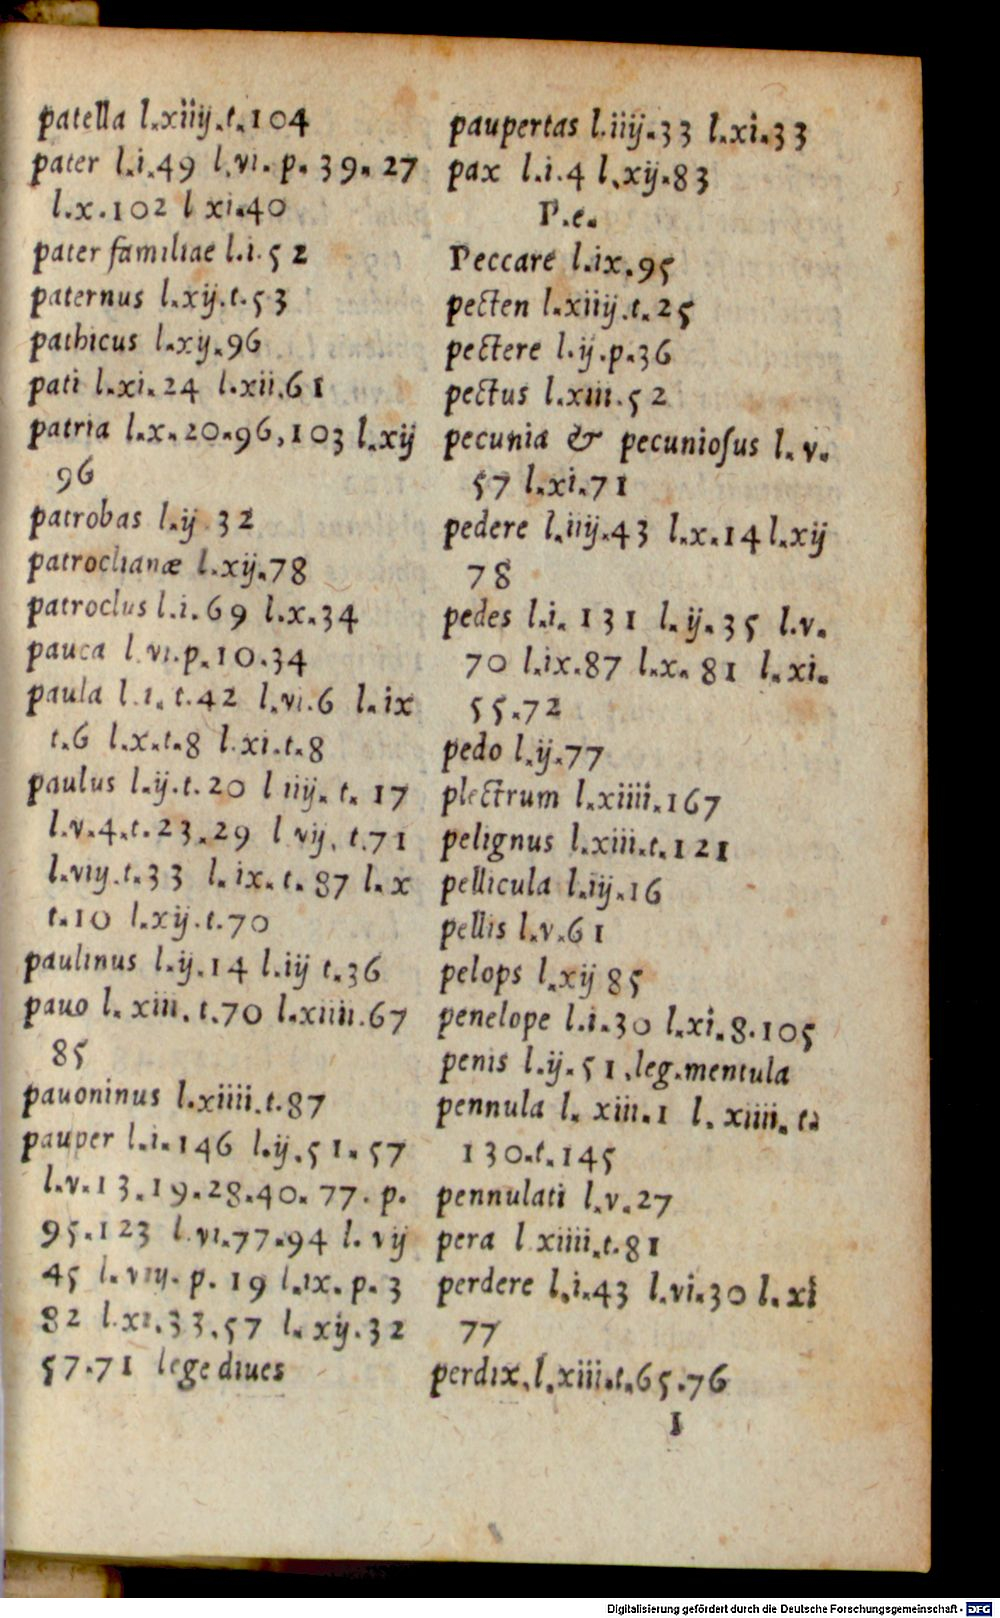 patella l.xiiij.t.104
pater l.i.49 l.vi.p.39.27
l.x.102 l xi.40
pater familiae l.i.52
paternus l.xij.t.53
pathicus l.xij.96
pati l.xi.24 l.xii.61
patria l.x.20.96,103 l.xij
96
patrobas l.ij 32
patroclianæ l.xij.78
patroclus l.i.69 l.x.34
pauca l.vi.p.10.34
paula l.i.t.42 l.vi.6 l.ix
t.6 l.x.t.8 l.xi.t.8
paulus l.ij.t.20 l iiij.t.17
l.v.4.t.23.29 l vij.t.71
l.viij.t.33 l.ix.t.87 l.x
t.10 l.xij.t.70
paulinus l.ij.14 l.iij t.36
pauo l.xiii.t.70 l.xiiii.67
85
pauoninus l.xiiii.t.87
pauper l.i.146 l.ij.51.57
l.v.13.19.28.40.77.p.
95.123 l.vi.77.94 l.vij
45 l.viij.p.19 l.ix.p.3
82 l.xi.33.57 l.xij.32
57.71 lege diues
paupertas l.iiij.33 l.xi.33
pax l.i.4 l.xij.83
P.e.
Peccare l.ix.95
pecten l.xiiij.t.25
pectere l.ij.p.36
pectus l.xiii.52
pecunia & pecuniosus l.v.
57 l.xi.71
pedere l.iiij.43 l.x.14 l.xij
78
pedes l.i.131 l.ij.35 l.v.
70 l.ix.87 l.x.81 l.xi.
55.72
pedo l.ij.77
plectrum l.xiiii.167
pelignus l.xiii.t.121
pellicula l.iij.16
pellis l.v.61
pelops l.xij 85
penelope l.i.30 l.xi.8.105
penis l.ij.51.leg.mentula
pennula l.xiii.1 l.xiiii.t.
130.t.145
pennulati l.v.27
pera l xiiii.t.81
perdere l.i.43 l.vi.30 l.xi
77
perdix.l.xiii.t.65.76
I
Digitalisierung gefördert durch die Deutsche Forschungsgemeinschaft - DFG